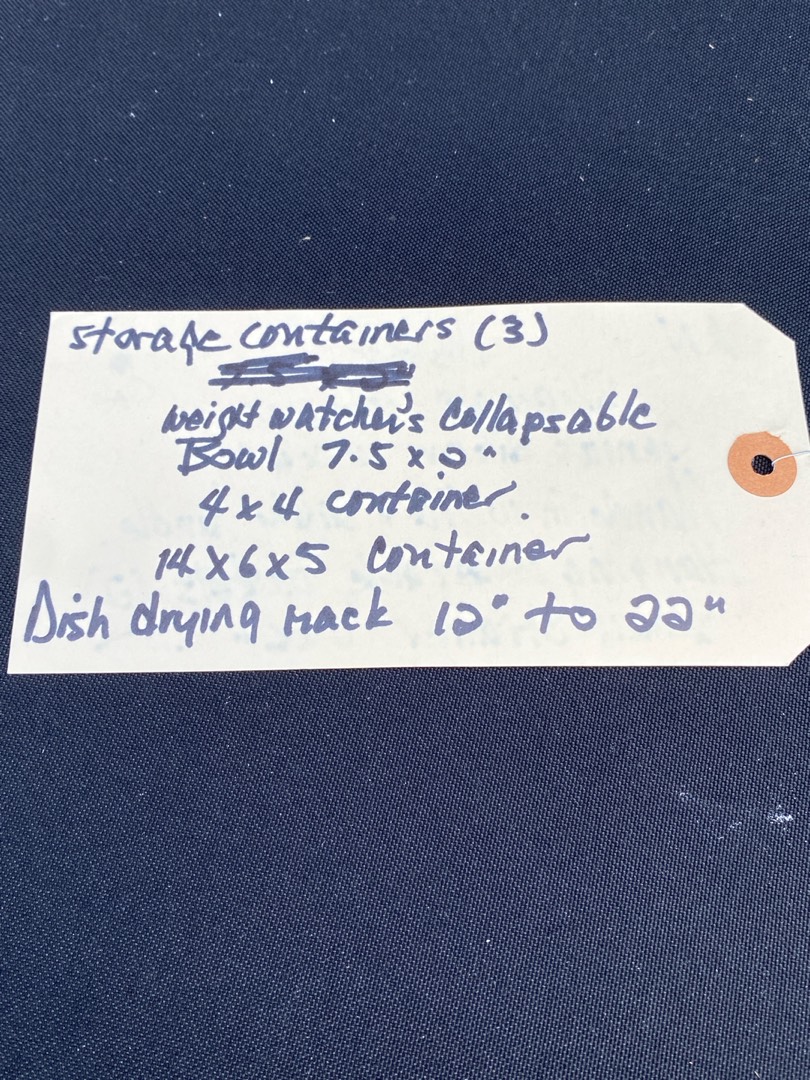 Storage containers (3)
weight watcher's Collapsable
Bowl 7.5 x 2"
4 x 4 container.
14 x 6 x 5 container
Dish drying rack 12" to 22"